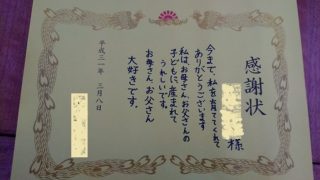 感謝状
様
今まで、私を育ててくれて
ありがとうございます
私は、お母さんお父さんの
子どもに、産まれて
うれしいです。
お母さん、お父さん
大好きです。
平成三一年 三月八日